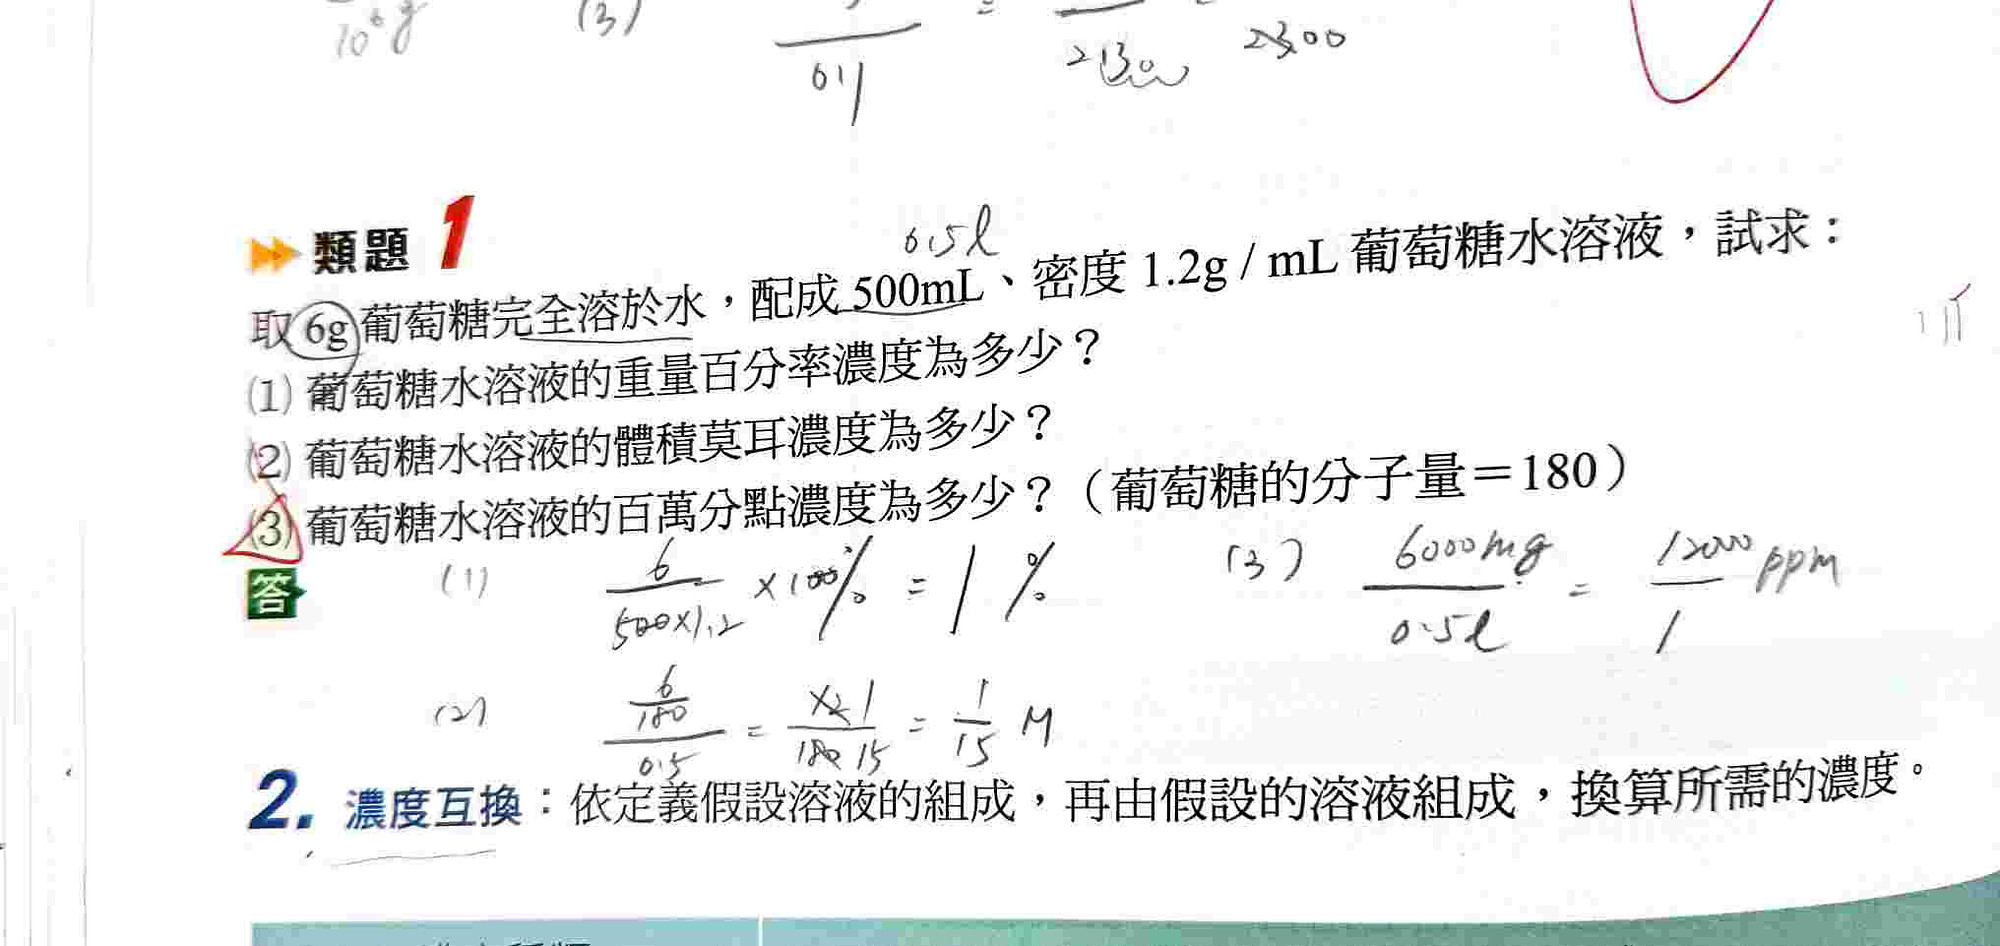 10⁶g (3) 0.1 = 2300
▶▶ 類題 1
0.5l
取6g葡萄糖完全溶於水,配成500mL、密度1.2g / mL葡萄糖水溶液,試求:
(1) 葡萄糖水溶液的重量百分率濃度為多少?
(2) 葡萄糖水溶液的體積莫耳濃度為多少?
(3) 葡萄糖水溶液的百萬分點濃度為多少?(葡萄糖的分子量=180)
答 (1) 6/500×1.2 ×100% = 1 % (3) 6000mg/0.5l = 12000/1 ppm
(2) 6/180/0.5 = ×2 1/180 15 = 1/15 M
2. 濃度互換:依定義假設溶液的組成,再由假設的溶液組成,換算所需的濃度。